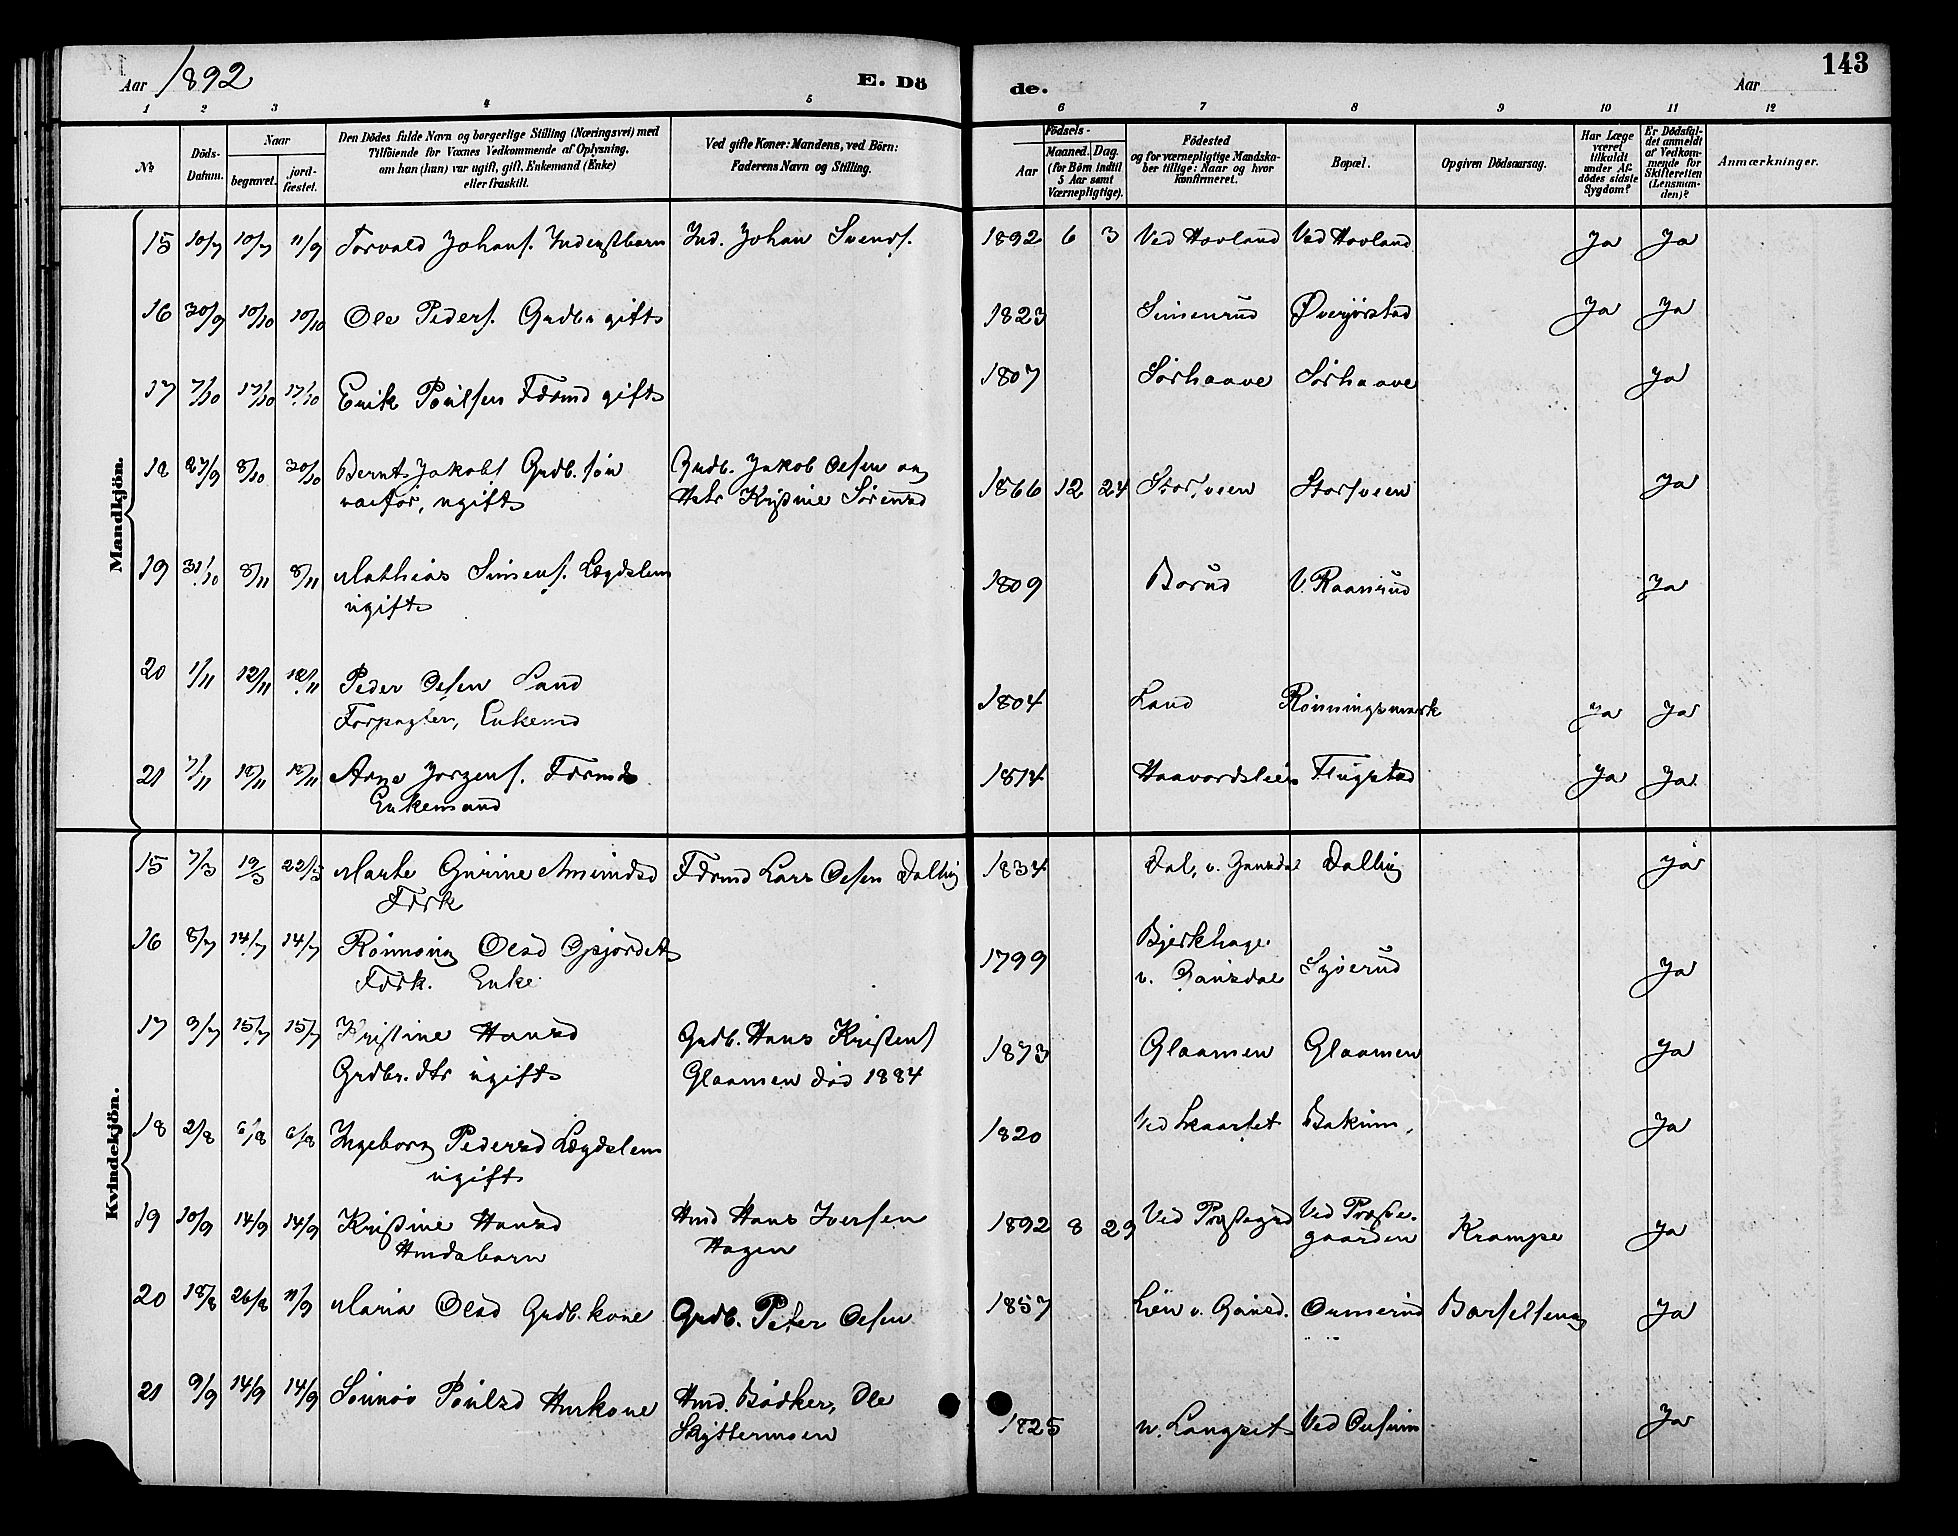 Aar 1892
E. Dö de.
Aar
143
1 2 3 4 5 6 7 8 9 10 11 12
No
Döds-Datum.
Naar
begravet.
jord-fæstet.
Den Dödes fulde Navn og borgerlige Stilling (Næringsvei) med
Tilföiende for Voxnes Vedkommende af Oplysning,
om han (hun) var ugift, gift, Enkemand (Enke)
eller fraskilt.
Ved gifte Koner: Mandens, ved Börn:
Faderens Navn og Stilling.
Födsels-
Aar
Maaned. Dag.
(for Börn indtil
5 Aar samt
Værnepligtige).
Födested
og for værnepligtige Mandska-
ber tillige: Naar og hvor
konfirmeret.
Bopæl.
Opgiven Dödsaarsag.
Har Læge
været
tilkaldt
under Af-
dödes sidste
Sygdom?
Er Dödsfal-
det anmeldt
af Vedkom-
mende for
Skifteretten
(Lensman-
den)?
Anmærkninger.
Mandkjön.
15 10/7 10/7 11/9 Torvald Johans. Inderstbarn Ind. Johan Svends. 1892 6 3 Ved Hovland Ved Hovland Ja Ja
16 30/9 10/10 10/10 Ole Peders. Grdbr gift 1823 Simenrud Øverjørstad Ja Ja
17 7/10 17/10 17/10 Erik Poulsen Fdrmd gift 1807 Sørhaave Sørhaave Ja
18 27/9 8/10 30/10 Bernt Jakobs. Grdb. søn Grdb. Jakob Olsen og
vanfør, ugift Hstr Kristine Sørensd 1866 12 24 Storsveen Storsveen Ja
19 31/10 8/11 8/11 Mathias Simens. Lægdslem 1809 Borud V. Raanrud Ja
ugift
20 1/11 12/11 12/11 Peder Olsen Land
Forpagter, Enkemd 1804 Land Rønningsmark Ja Ja
21 7/11 12/11 12/11 Arne Jørgens. Fdrmd 1814 Haavordslien Flugstad Ja Ja
Enkemand
Kvindekjön.
15 7/3 19/3 22/3 Marte Gurine Amundsd Fdrmd Lars Olsen Dalby 1834 Dal, v. Gausdal Dalby Ja
Fdrk
16 8/7 14/7 14/7 Rønnaug Olsd Opsjordet 1799 Bjerkhage
v. Gausdal Ja
Fdrk. Enke
17 9/7 15/7 15/7 Kristine Hansd Grdb. Hans Kristens
Grdbr. dtr ugift Glaamen død 1884 1873 Glaamen Glaamen Ja
18 2/8 6/8 6/8 Ingeborg Pedersd Lægdslem 1820 Ved Skaartet Bakum, Ja
ugift
19 10/9 14/9 14/9 Kristine Hansd Hmd Hans Iversen 1892 8 29 Ved Præstegrd Ved Præste-
gaarden Krampe Ja
Hmdsbarn Hagen
20 18/8 26/8 11/9 Maria Olsd Grdb. kone Grdb. Peter Olsen 1857 Lien v. Gausd. Onnerud Barselseng Ja
21 9/9 14/9 14/9 Sønnøv Poulsd Hmkone Hmd. Bødker, Ole
Skyttermoen 1825 v. Langset Ved Ja